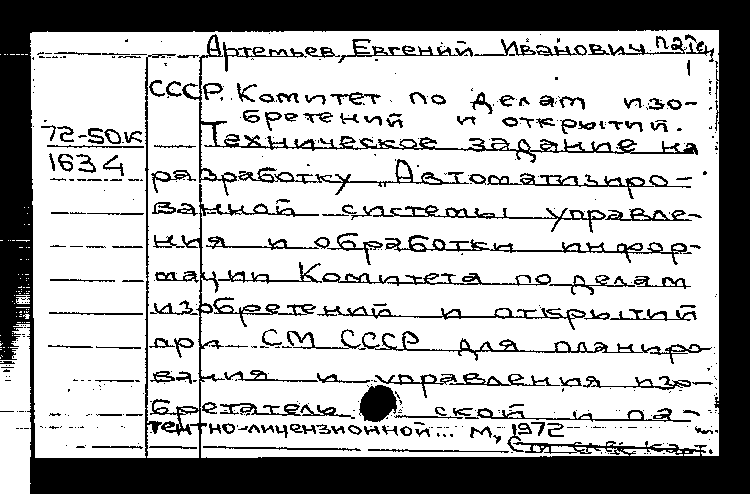 Артемьев, Евгений Иванович
1
СССР. Комитет по делам изо-
бретений и открытий.
72-50к
1634
Техническое задание на
разработку „Автоматизиро-
ванной системы управле-
ния и обработки инфор-
мации Комитета по делам
изобретений и открытий
при СМ СССР для планиро
вания и управления изо-
бретатель ской и па-
тентно-лицензионной... М, 1972
См след карт.